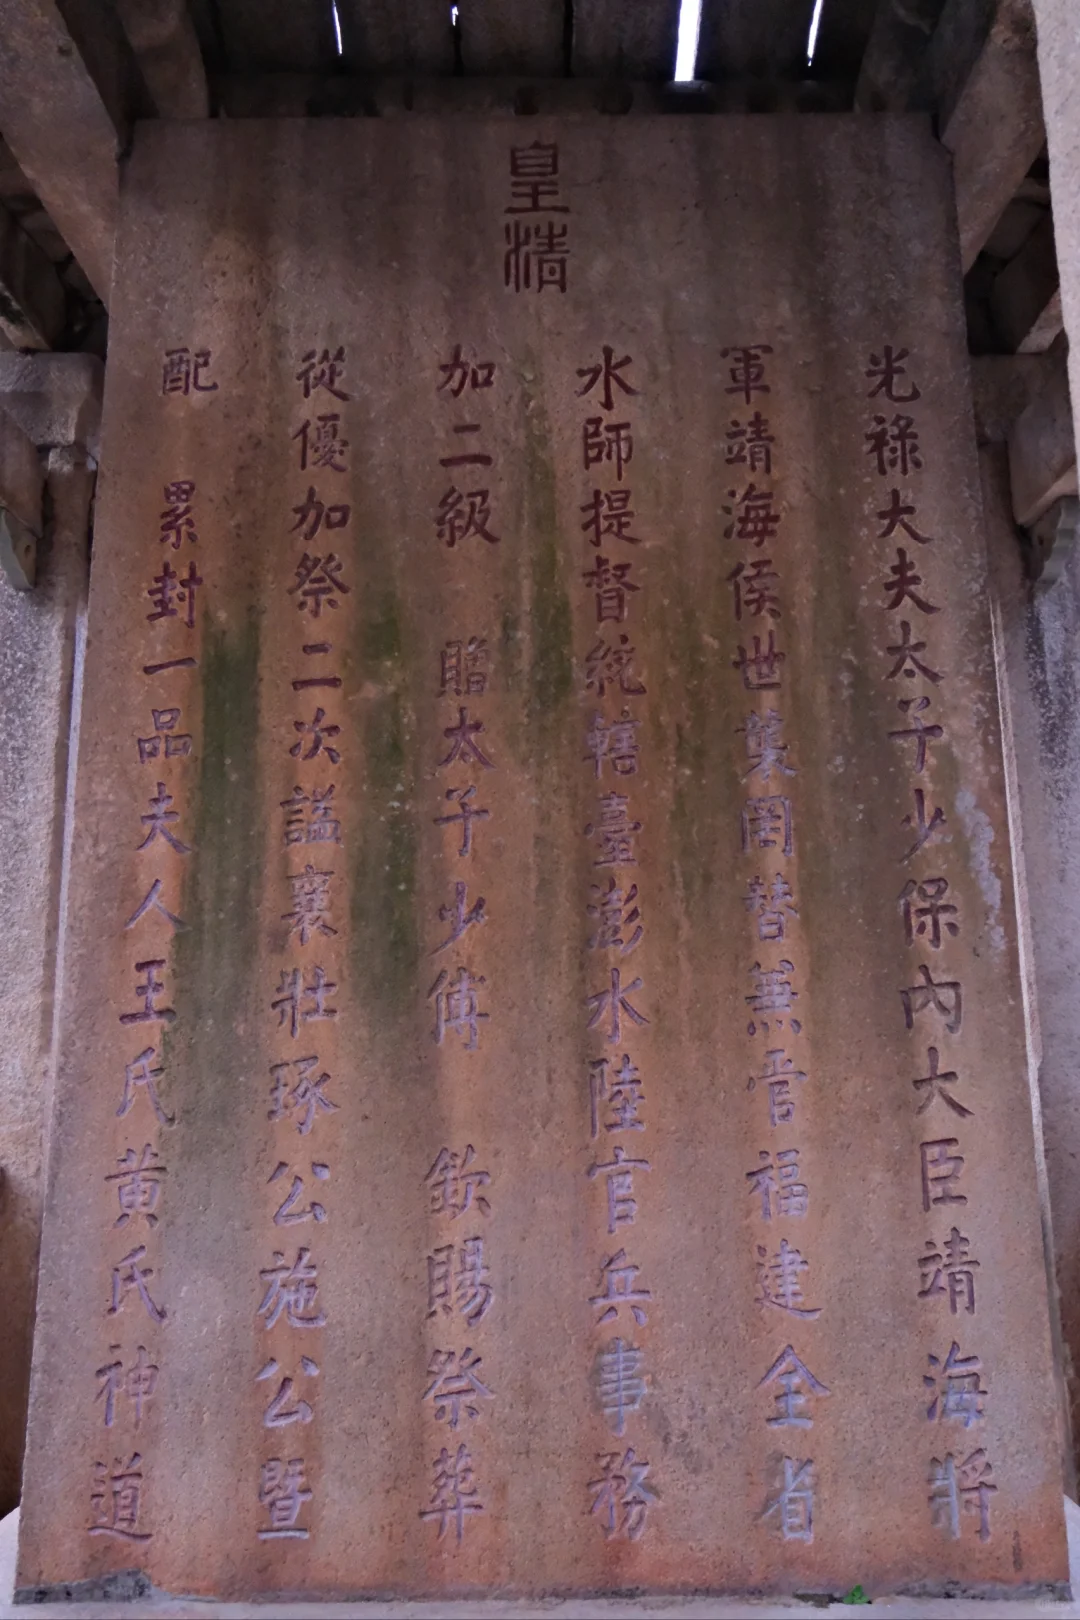 皇清
光祿大夫太子少保內大臣靖海將
軍靖海侯世襲罔替兼管福建全省
水師提督統轄臺澎水陸官兵事務
加二級 贈太子少傅 欽賜祭葬
從優加祭二次諡襄壯琢公施公暨
配 累封一品夫人王氏黃氏神道